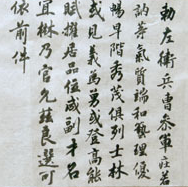 勅左衛兵曹參軍庄若
訥等氣質端和藝理優
暢早階秀茂俱列士林
或見義為勇或登高能
賦擢居品位咸副才名
宜楙乃官允茲良選可
依前件